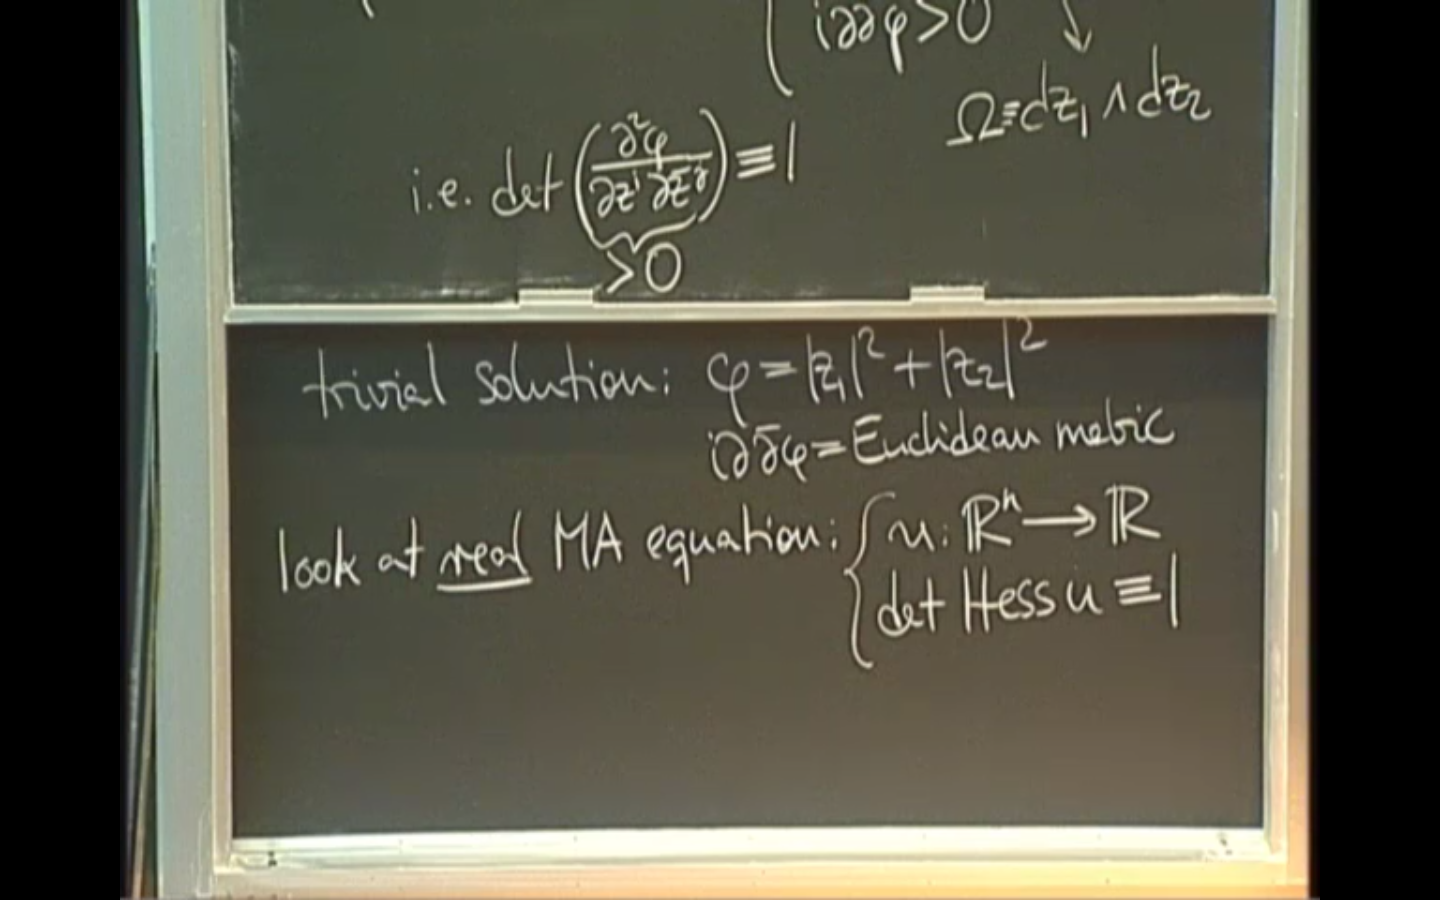 i∂∂φ>0
Ω≡dz₁∧dz₂
i.e. det(∂²φ/∂zⁱ∂z̄ʲ)≡1
>0
trivial solution: φ=|z₁|²+|z₂|²
i∂∂̄φ=Euclidean metric
look at real MA equation: { u: ℝⁿ→ℝ
det Hess u ≡1